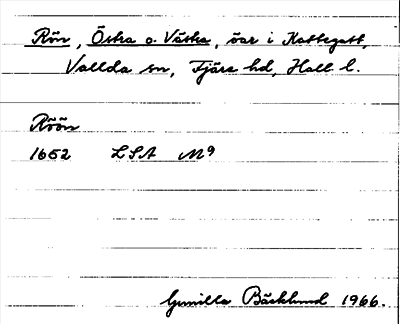 Rön, Östra o. Västra, öar i Kattegatt,
Vallda sn, Fjäre hd, Hall l.
Röön
1652 LSA M9
Gunilla Bäcklund 1966.